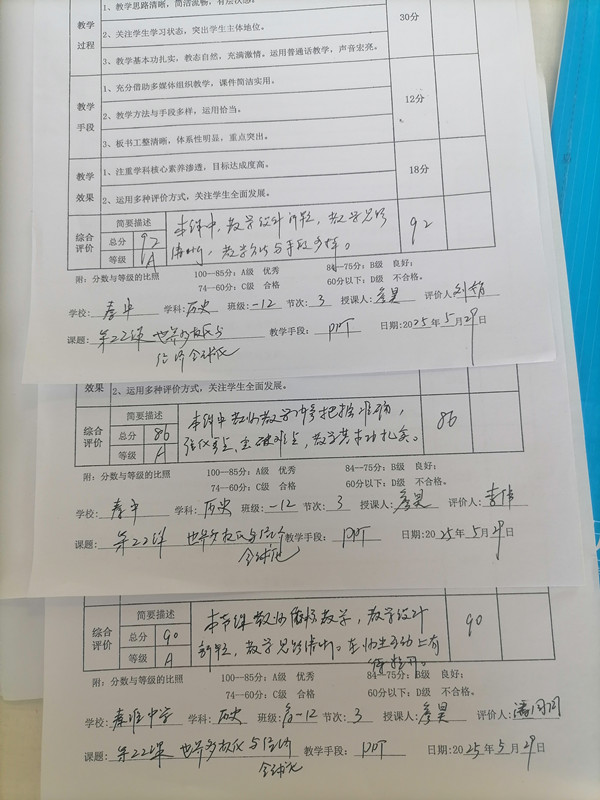 1、教学思路清晰，简洁流畅，有层次感。
教学过程
2、关注学生学习状态，突出学生主体地位。
30分
3、教学基本功扎实，教态自然，充满激情。运用普通话教学，声音宏亮。
1、充分借助多媒体组织教学，课件简洁实用。
教学手段
2、教学方法与手段多样，运用恰当。
12分
3、板书工整清晰，体系性明显，重点突出。
教学效果
1、注重学科核心素养渗透，目标达成度高。
18分
2、运用多种评价方式，关注学生全面发展。
综合评价
简要描述
本课中，教学设计新颖，教学思路
92
总分 92
清晰，教学方法与手段多样。
等级 A
附：分数与等级的比照 100--85分：A级 优秀 84--75分：B级 良好；
74--60分：C级 合格 60分以下：D级 不合格。
学校：秦中 学科：历史 班级：-12 节次：3 授课人：昊 评价人：刘娟
课题：第22课 世界多极化与 教学手段：PPT 日期：2025年5月29日
经济全球化
效果 2、运用多种评价方式，关注学生全面发展。
综合评价
简要描述
本课中教师教学内容把握准确，
86
总分 86
强化重点，突破难点，教学基本功扎实。
等级 A
附：分数与等级的比照 100--85分：A级 优秀 84--75分：B级 良好；
74--60分：C级 合格 60分以下：D级 不合格。
学校：秦中 学科：历史 班级：-12 节次：3 授课人：昊 评价人：李伟
课题：第22课 世界多极化与经济 教学手段：PPT 日期：2025年5月29日
全球化
综合评价
简要描述
本节课教师 教学，教学设计
90
总分 90
新颖，教学思路清晰。在师生互动上有
等级 A
附：分数与等级的比照 100--85分：A级 优秀 84--75分：B级 良好；
74--60分：C级 合格 60分以下：D级 不合格。
学校：秦淮中学 学科：历史 班级：高-12 节次：3 授课人：昊 评价人：潘
课题：第22课 世界多极化与经济 教学手段：PPT 日期：2025年5月29日
全球化